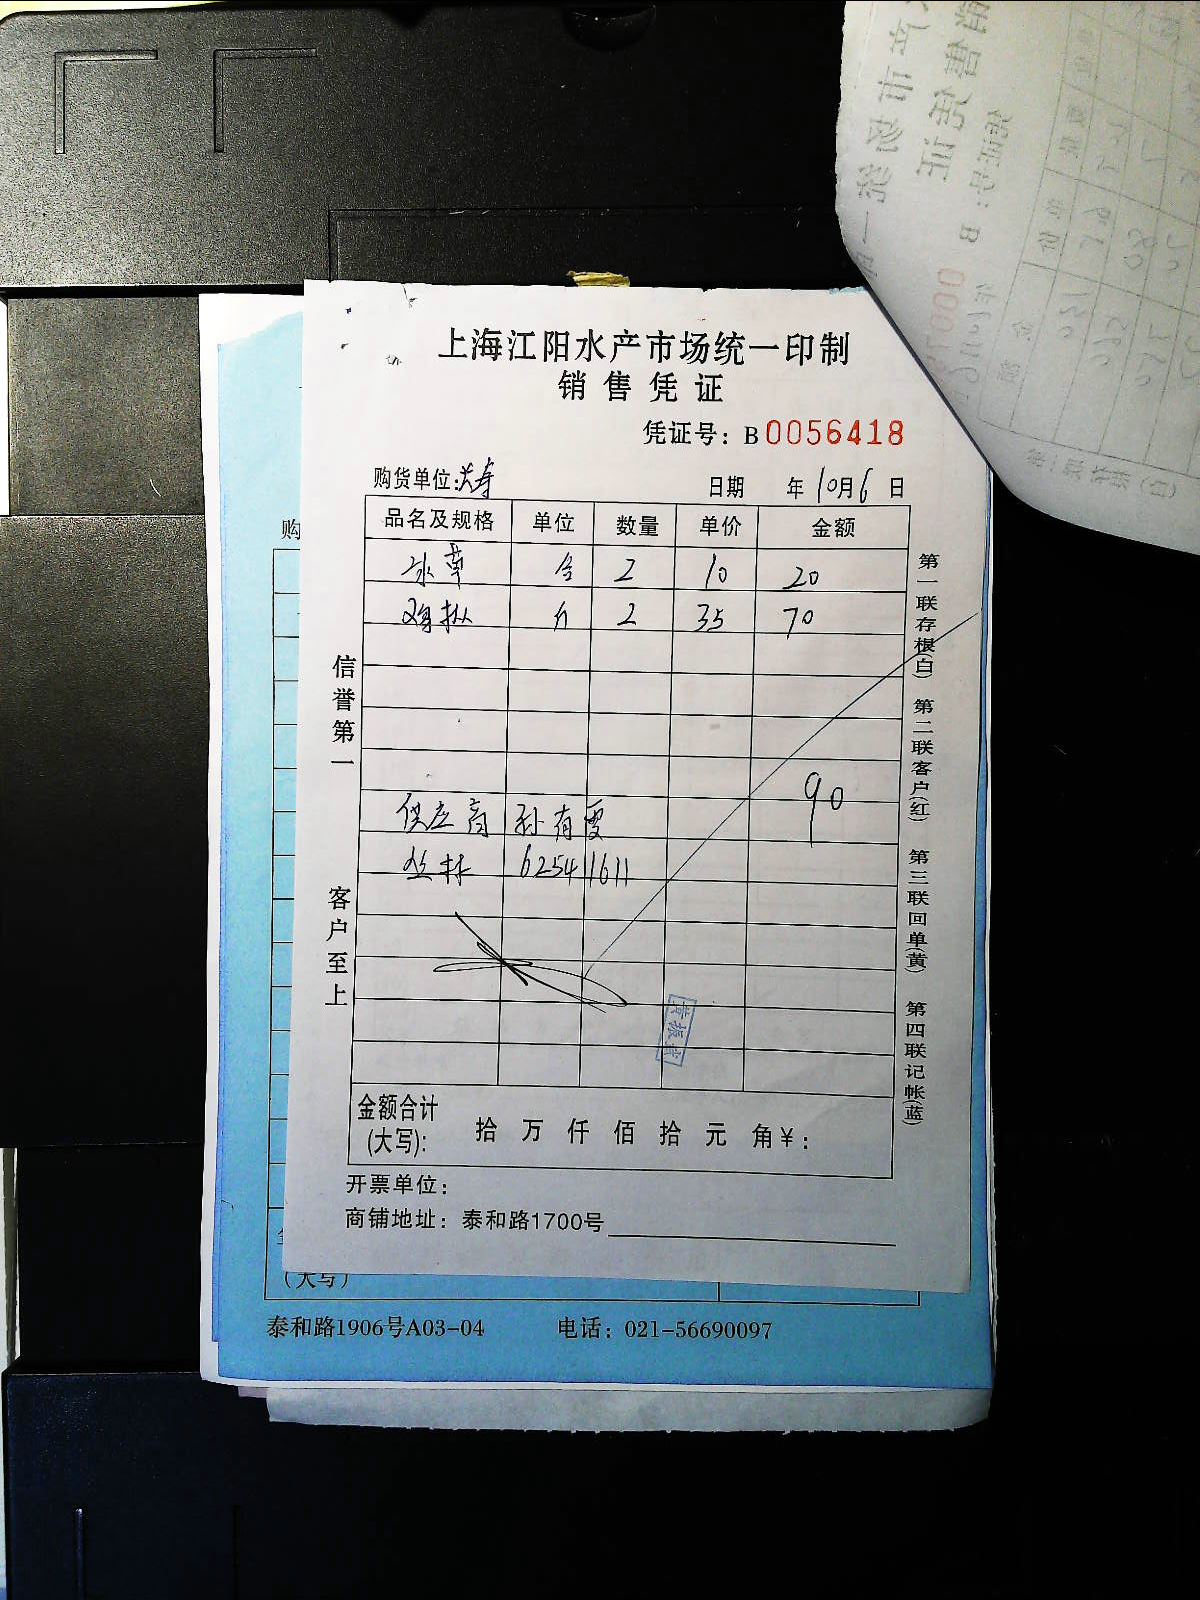 上海江阳水产市场统一印制
销售凭证
凭证号：B0056418
购货单位：大寿
日期 年10月6日
品名及规格 单位 数量 单价 金额
冰草 合 2 10 20
鸡枞 斤 2 35 70
90
供应商 孙有雯
丛林 62541611
信誉第一
客户至上
第一联存根(白) 第二联客户(红) 第三联回单(黄) 第四联记帐(蓝)
黄振
金额合计
(大写): 拾 万 仟 佰 拾 元 角¥:
开票单位:
商铺地址：泰和路1700号
购
(大写)
泰和路1906号A03-04 电话：021-56690097